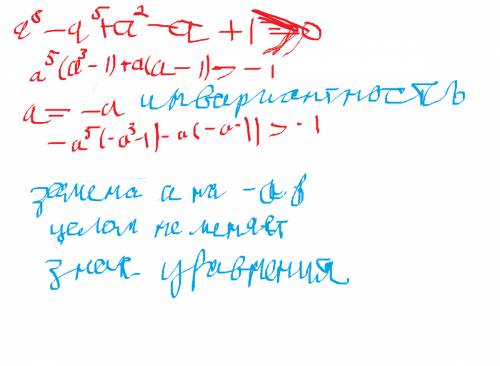 a⁸ - a⁵ + a² - a + 1 > 0
a⁵(a³-1)+a(a-1)>-1
a = -a инвариантность
-a⁵(-a³-1)-a(-a-1)>-1
замена a на -a в
целом не меняет
знак уравнения